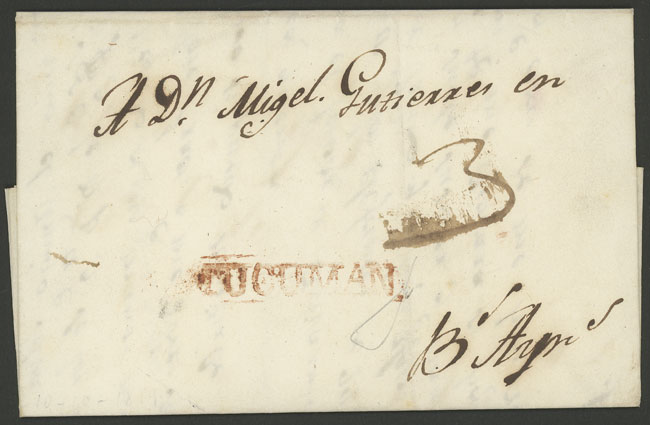 A Dn. Migel. Gutierres en
3
TUCUMAN
Bs Ayrs